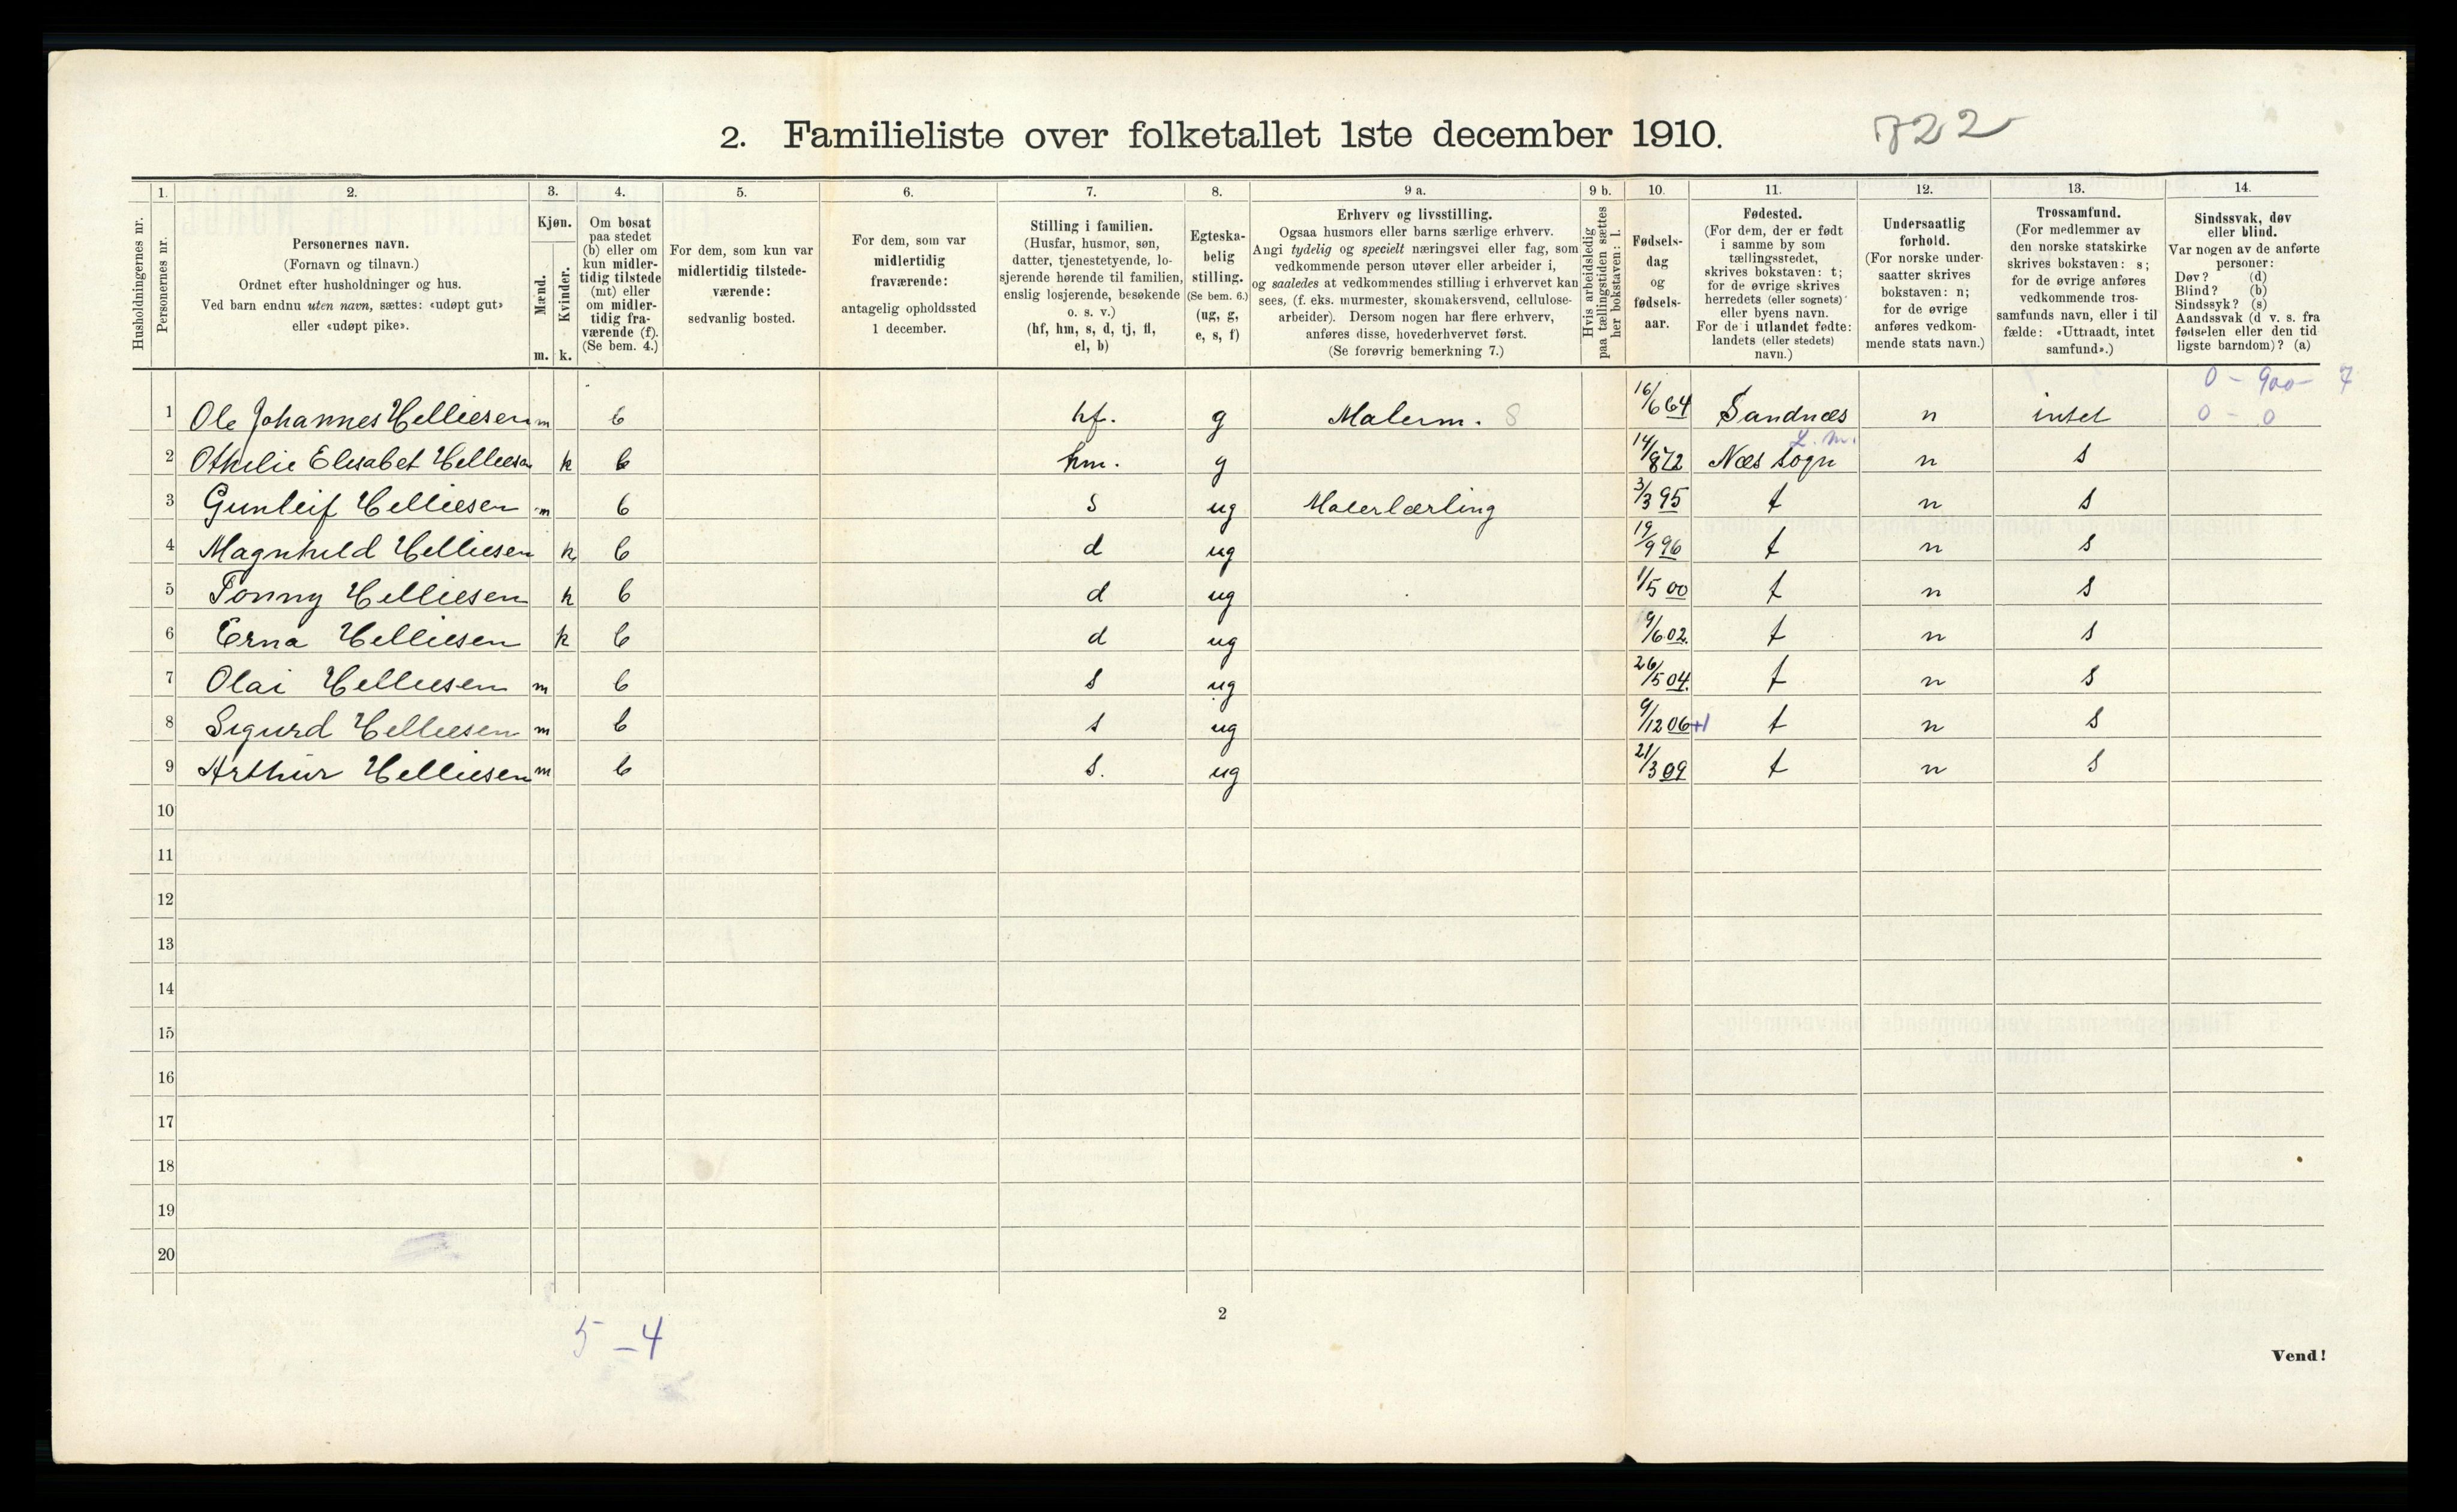 2. Familieliste over folketallet 1ste december 1910.
722
Husholdningernes nr.
1.
Personernes nr.
2.
Personernes navn.
(Fornavn og tilnavn.)
Ordnet efter husholdninger og hus.
Ved barn endnu uten navn, sættes: «udøpt gut»
eller «udøpt pike».
3.
Kjøn.
Mænd.
m.
Kvinder.
k.
4.
Om bosat
paa stedet
(b) eller om
kun midler-
tidig tilstede
(mt) eller
om midler-
tidig fra-
værende (f).
(Se bem. 4.)
5.
For dem, som kun var
midlertidig tilstede-
værende:
sedvanlig bosted.
6.
For dem, som var
midlertidig
fraværende:
antagelig opholdssted
1 december.
7.
Stilling i familien.
(Husfar, husmor, søn,
datter, tjenestetyende, lo-
sjerende hørende til familien,
enslig losjerende, besøkende
o. s. v.)
(hf, hm, s, d, tj, fl,
el, b)
8.
Egteska-
belig
stilling.
(Se bem. 6.)
(ug, g,
e, s, f)
9 a.
Erhverv og livsstilling.
Ogsaa husmors eller barns særlige erhverv.
Angi tydelig og specielt næringsvei eller fag, som
vedkommende person utøver eller arbeider i,
og saaledes at vedkommendes stilling i erhvervet kan
sees, (f. eks. murmester, skomakersvend, cellulose-
arbeider). Dersom nogen har flere erhverv,
anføres disse, hovederhvervet først.
(Se forøvrig bemerkning 7.)
9 b.
Hvis arbeidsledig
paa tællingstiden sættes
her bokstaven: l.
10.
Fødsels-
dag
og
fødsels-
aar.
11.
Fødested.
(For dem, der er født
i samme by som
tællingsstedet,
skrives bokstaven: t;
for de øvrige skrives
herredets (eller sognets)
eller byens navn.
For de i utlandet fødte:
landets (eller stedets)
navn.)
12.
Undersaatlig
forhold.
(For norske under-
saatter skrives
bokstaven: n;
for de øvrige
anføres vedkom-
mende stats navn.)
13.
Trossamfund.
(For medlemmer av
den norske statskirke
skrives bokstaven: s;
for de øvrige anføres
vedkommende tros-
samfunds navn, eller i til
fælde: «Uttraadt, intet
samfund».)
14.
Sindssvak, døv
eller blind.
Var nogen av de anførte
personer:
Døv? (d)
Blind? (b)
Sindssyk? (s)
Aandssvak (d v. s. fra
fødselen eller den tid
ligste barndom)? (a)
0 - 900 - 7
1 Ole Johannes Helliesen m b hf. g Malerm. S 16/6 64 Sandnæs n intet 0 - 0
L. M.
2 Othelie Elisabet Helliesen k b hm. g 14/8 72 Næs sogn n s
3 Gunleif Helliesen m b s ug Malerlærling 3/3 95 t n s
4 Magnhild Helliesen k b d ug 19/9 96 t n s
5 Tonny Helliesen k b d ug 1/5 00 t n s
6 Erna Helliesen k b d ug 9/6 02. t n s
7 Olai Helliesen m b s ug 26/5 04. t n s
8 Sigurd Helliesen m b s ug 9/12 06 +1 t n s
9 Arthur Helliesen m b s. ug 21/3 09 t n s
10
11
12
13
14
15
16
17
18
19
20
2
5 - 4
Vend!